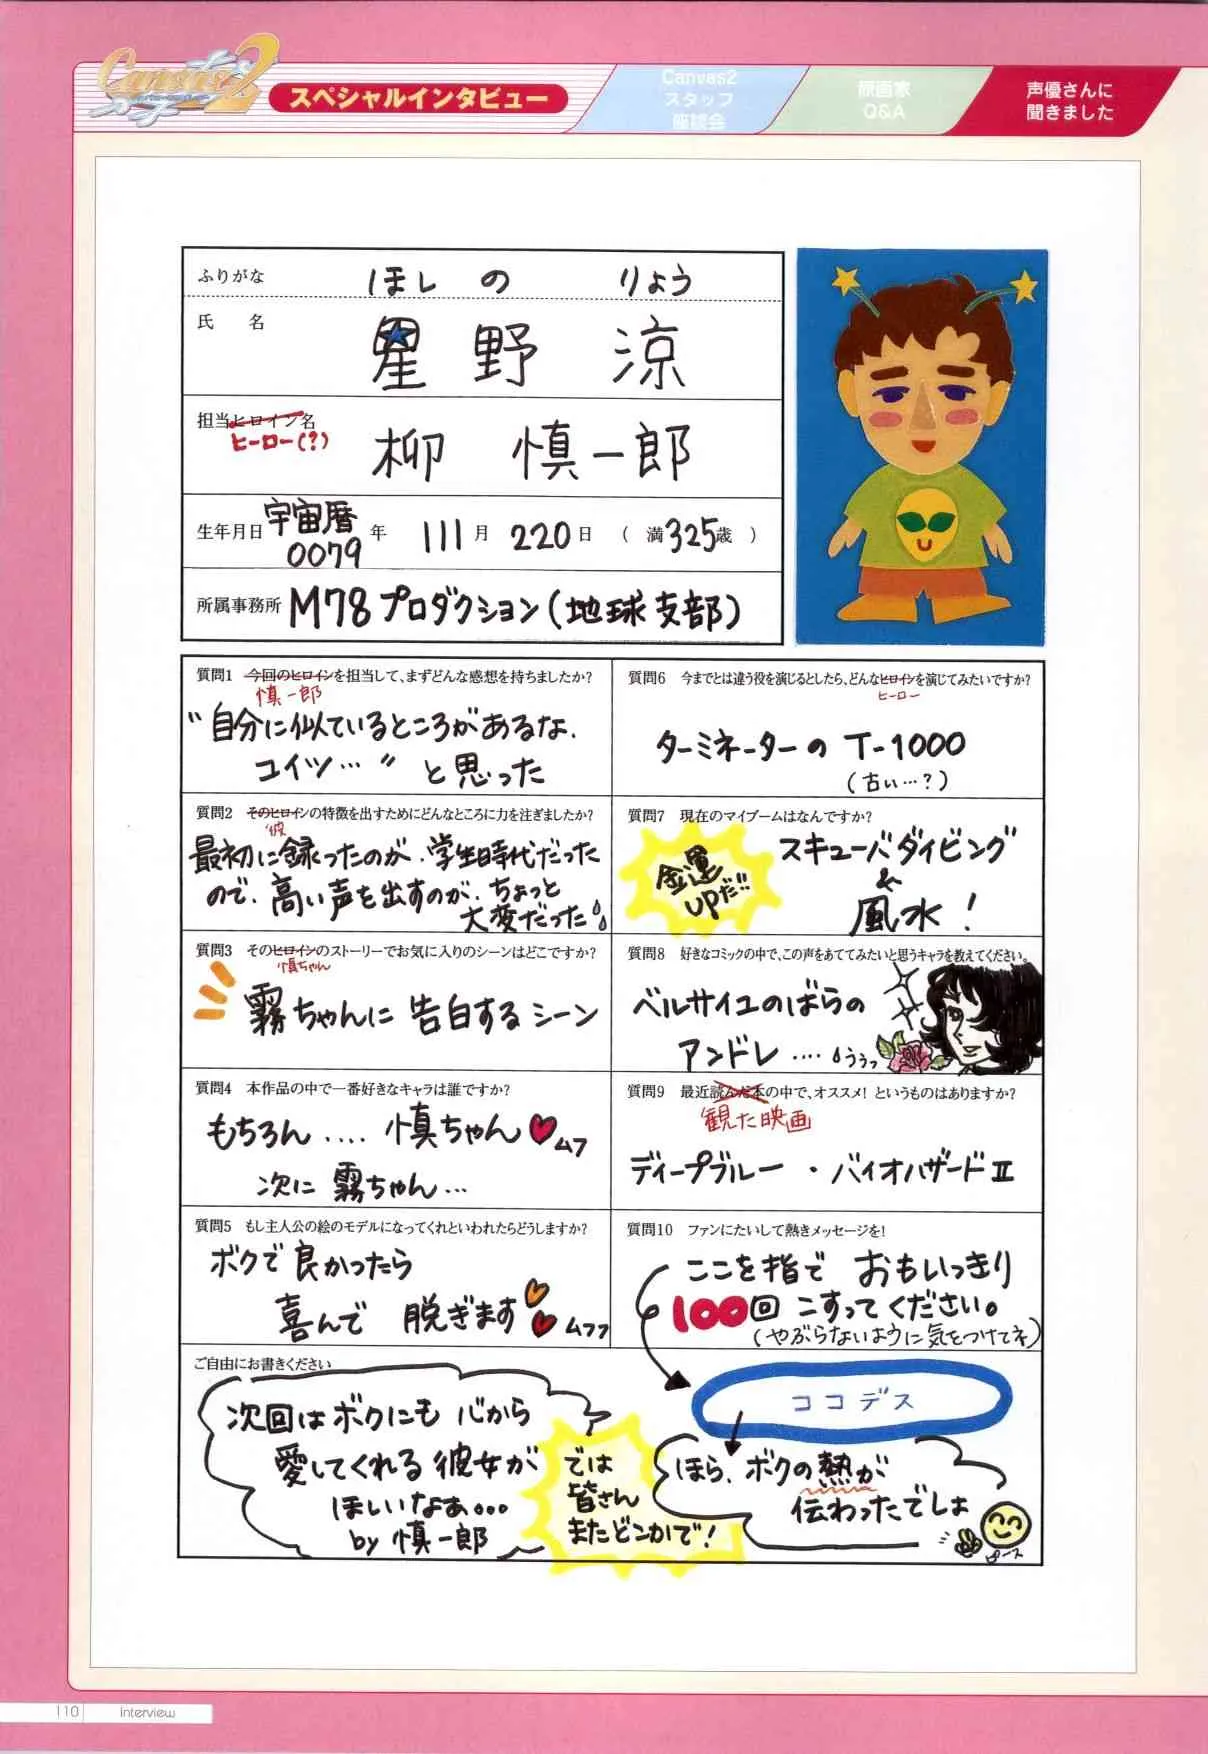 Canvas2
スペシャルインタビュー
Canvas2
スタッフ
座談会
原画家
Q&A
声優さんに
聞きました
ふりがな ほし の りょう
氏 名 星 野 涼
担当ヒロイン名 柳 慎一郎
ヒーロー(?)
生年月日 宇宙暦0079年 111月 220日 (満325歳)
所属事務所 M78プロダクション(地球支部)
質問1 今回のヒロインを担当して、まずどんな感想を持ちましたか?
慎一郎
"自分に似ているところがあるな、
コイツ…" と思った
質問2 そのヒロインの特徴を出すためにどんなところに力を注ぎましたか?
彼
最初に録ったのが、学生時代だった
ので、高い声を出すのが、ちょっと
大変だった
質問3 そのヒロインのストーリーでお気に入りのシーンはどこですか?
慎ちゃん
霧ちゃんに 告白する シーン
質問4 本作品の中で一番好きなキャラは誰ですか?
もちろん.... 慎ちゃん ムフ
次に 霧ちゃん...
質問5 もし主人公の絵のモデルになってくれといわれたらどうしますか?
ボクで良かったら
喜んで 脱ぎます ムフフ
質問6 今までとは違う役を演じるとしたら、どんなヒロインを演じてみたいですか?
ヒーロー
ターミネーターの T-1000
(古い…?)
質問7 現在のマイブームはなんですか?
金運
UPだ!!
スキューバダイビング
&
風水!
質問8 好きなコミックの中で、この声をあててみたいと思うキャラを教えてください。
ベルサイユのばらの
アンドレ .... ううっ
質問9 最近読んだ本の中で、オススメ! というものはありますか?
観た映画
ディープブルー ・ バイオハザードII
質問10 ファンにたいして熱きメッセージを!
ここを指で おもいっきり
100回 こすってください。
(やぶらないように気をつけてネ)
ココデス
ほら、ボクの熱が
伝わったでしょ
ピース
ご自由にお書きください
次回はボクにも 心から
愛してくれる 彼女が
ほしいなぁ...
by 慎一郎
では
皆さん
またどこかで!
110 Interview